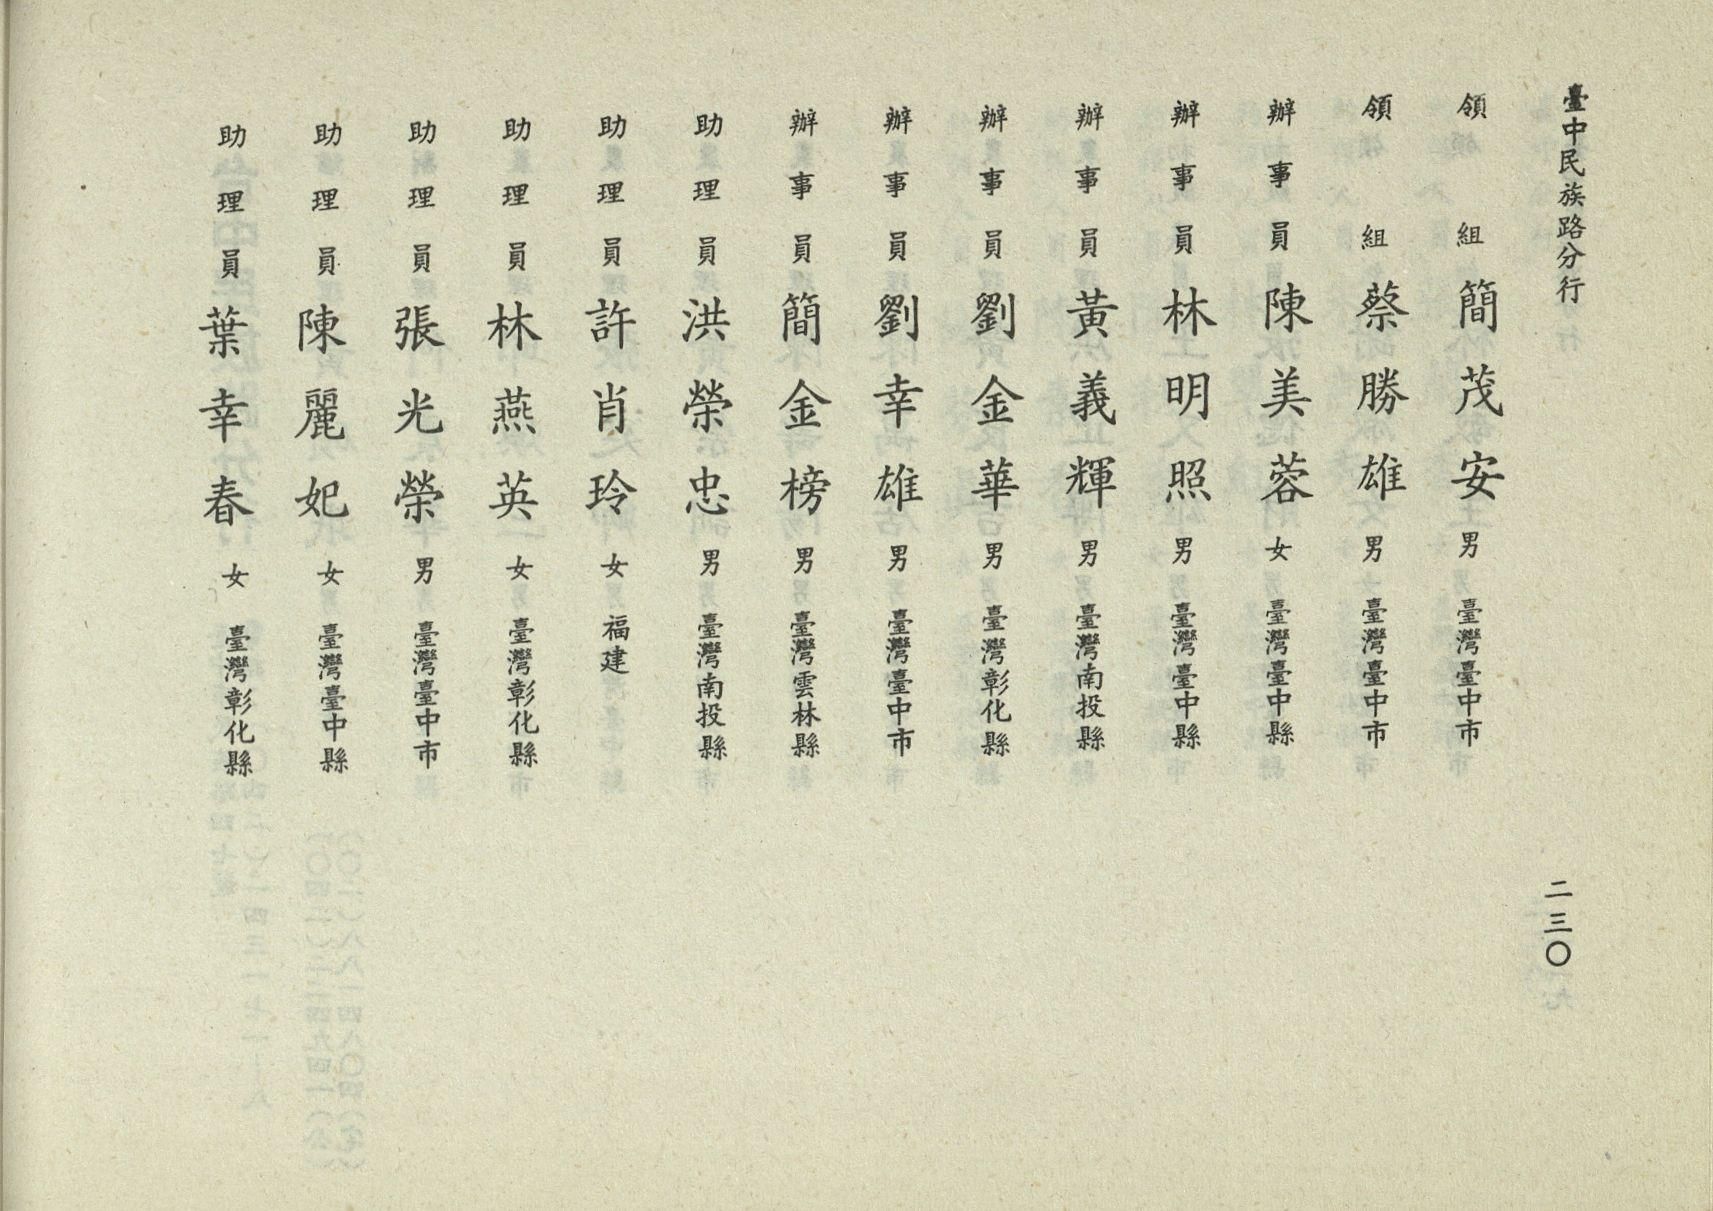 臺中民族路分行
二三〇
領組 簡茂安 男 臺灣臺中市
領組 蔡勝雄 男 臺灣臺中市
辦事員 陳美蓉 女 臺灣臺中縣
辦事員 林明照 男 臺灣臺中縣
辦事員 黃義輝 男 臺灣南投縣
辦事員 劉金華 男 臺灣彰化縣
辦事員 劉幸雄 男 臺灣臺中市
辦事員 簡金榜 男 臺灣雲林縣
助理員 洪榮忠 男 臺灣南投縣
助理員 許肖玲 女 福建
助理員 林燕英 女 臺灣彰化縣
助理員 張光榮 男 臺灣臺中市
助理員 陳麗妃 女 臺灣臺中縣
助理員 葉幸春 女 臺灣彰化縣